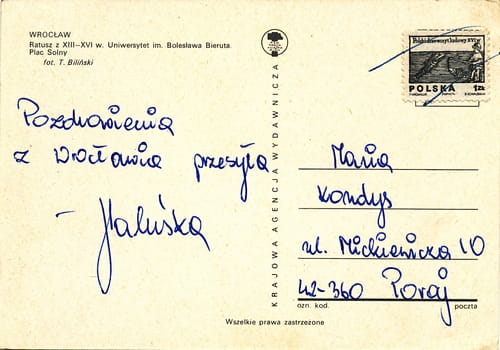 WROCŁAW
Ratusz z XIII–XVI w. Uniwersytet im. Bolesława Bieruta.
Plac Solny
fot. T. Biliński
Pozdrowienia
z Wrocławia przesyła
– Haluśka
KRAJOWA AGENCJA WYDAWNICZA
POLSKA 1zł
Maria
Kondys
ul. Mickiewicza 10
42-360 Poraj
ozn. kod. poczta
Wszelkie prawa zastrzeżone